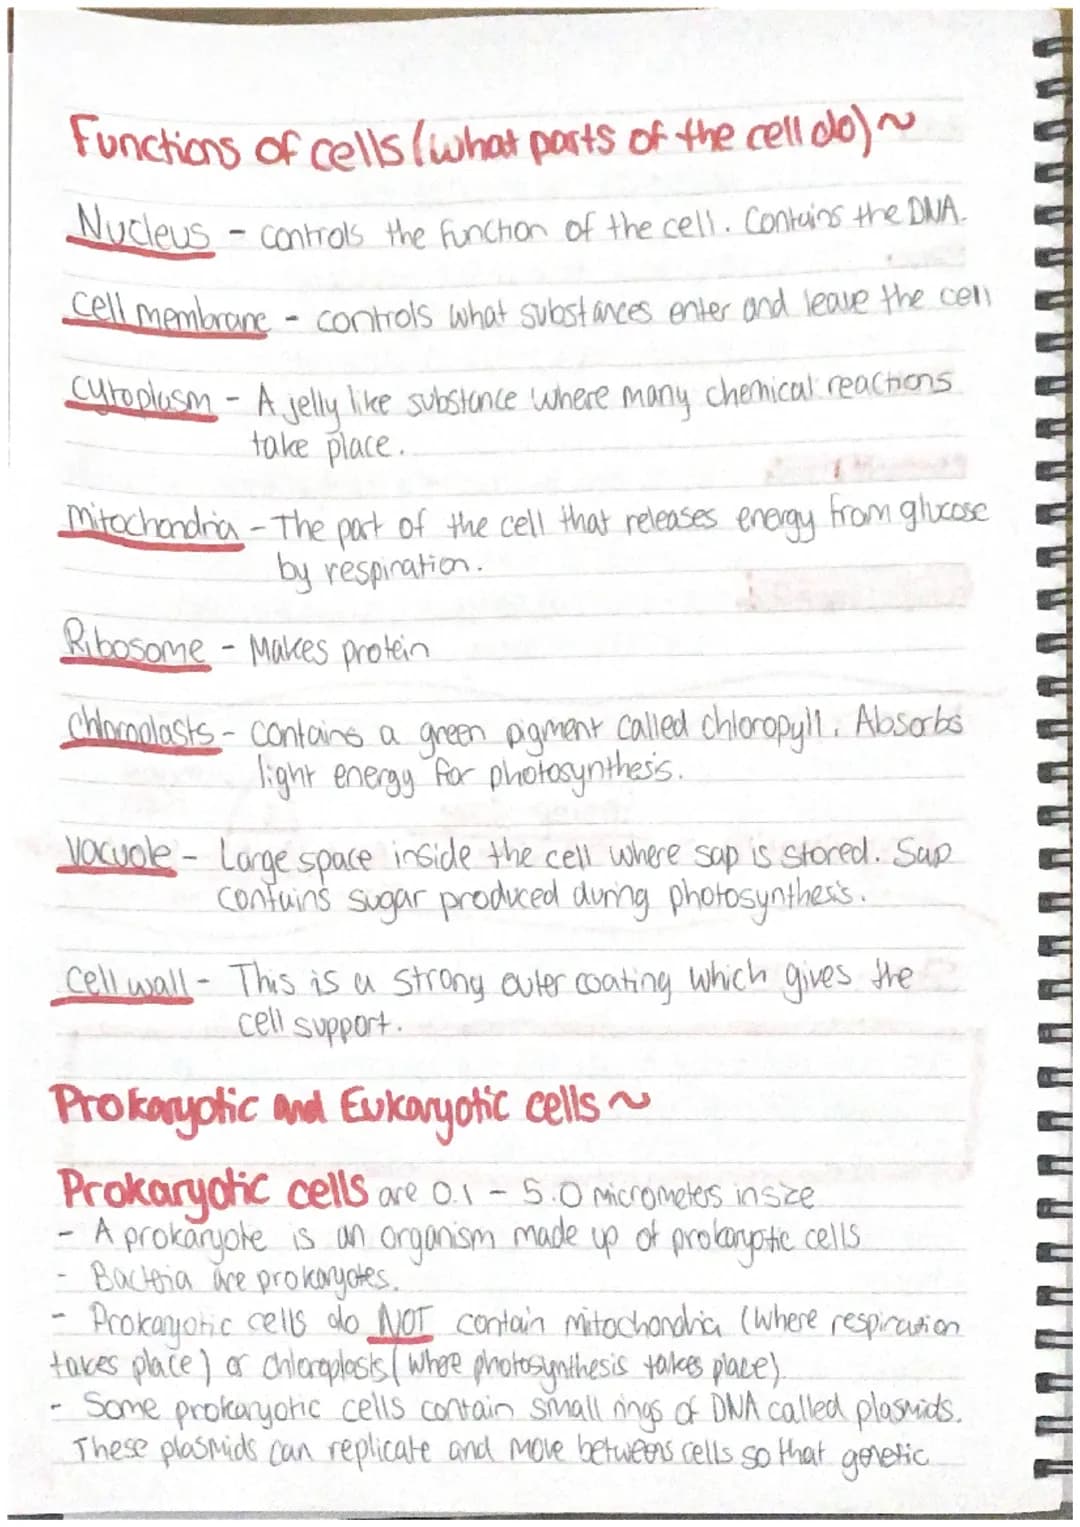 Functions of cells (what parts of the cell do) ~
Nucleus - controls the function of the cell. Contains the DNA.
Cell membrane - controls what substances enter and leave the cell
Cytoplasm - A jelly like substance where many chemical reactions
take place.
Mitochondria - The part of the cell that releases energy from glucose
by respiration.
Ribosome - Makes protein
Chloroplasts - contains a green pigment called chloropyll. Absorbs
light energy for photosynthesis.
Vacuole - Large space inside the cell where sap is stored. Sap
contains sugar produced during photosynthesis.
Cell wall - This is a strong outer coating which gives the
cell support.
Prokaryotic and Eukaryotic cells ~
Prokaryotic cells are 0.1 - 5.0 micrometers in size
- A prokaryote is an organism made up of prokaryotic cells
- Bacteria are prokaryotes.
- Prokaryotic cells do NOT contain mitochondria (where respiration
takes place) or chloroplasts (where photosynthesis takes place)
- Some prokaryotic cells contain small rings of DNA called plasmids.
These plasmids can replicate and move betweens cells so that genetic